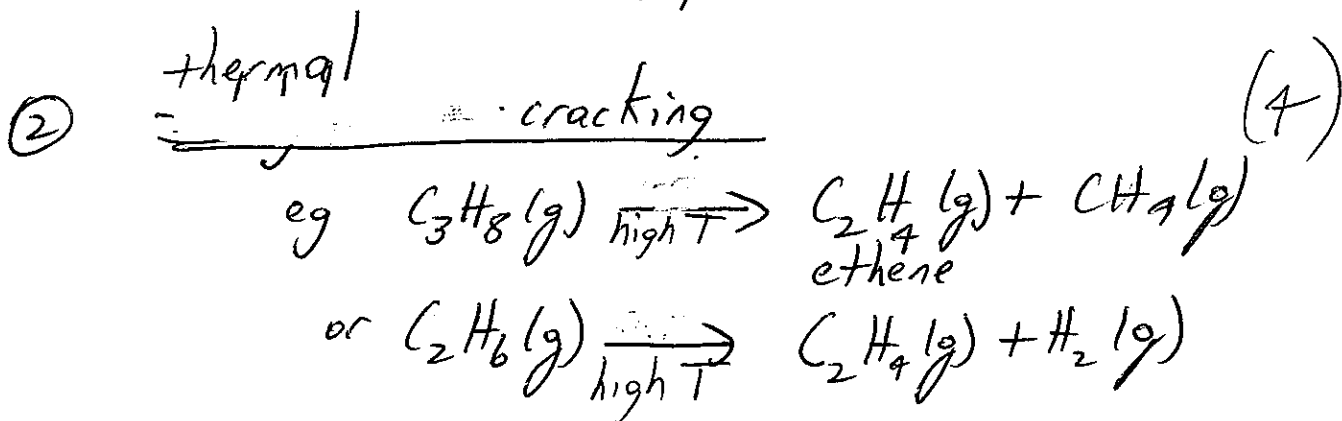 thermal
② cracking (4)
eg C₃H₈(g) →(high T) C₂H₄(g) + CH₄(g)
ethene
or C₂H₆(g) →(high T) C₂H₄(g) + H₂(g)